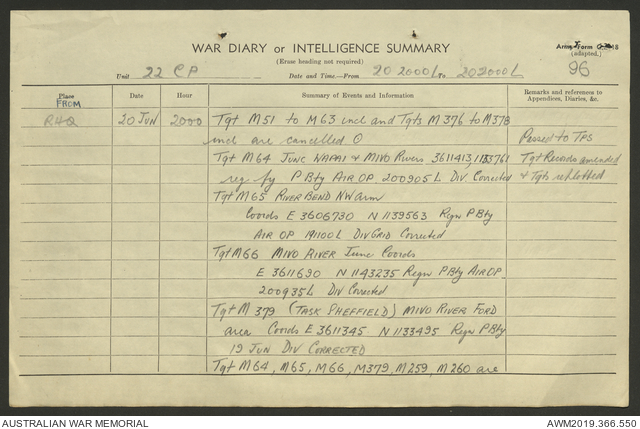 WAR DIARY or INTELLIGENCE SUMMARY
Army Form
(Erase heading not required)
(adapted.)
Unit 22 CP
Date and Time—From 20 2000L To 202000L
96
Place
Date
Hour
Summary of Events and Information
Remarks and references to
Appendices, Diaries, &c.
FROM
RHQ 20 JUN 2000 Tgt M51 to M63 incl and Tgts M376 to M378
incl are cancelled
Passed to TPS
Tgt M64 Junc WAPAI & MIVO Rivers 3611413,
Tgt Records amended
reg by P Bty AIR OP 200905L DIV Corrected
& Tgts replotted
Tgt M65 RIVER BEND NW arm
Coords E 3606730 N 1139563 Regn P Bty
AIR OP 191100L DIVGRID Corrected
Tgt M66 MIVO RIVER Junc Coords
E 3611690 N 1143235 Regn P Bty AIR OP
200935L DIV Corrected
Tgt M 379 (TASK SHEFFIELD) MIVO RIVER FORD
area Coords E 3611345 N 1133495 Regn P Bty
19 JUN DIV CORRECTED
Tgt M64, M65, M66, M379, M259, M260 are
AUSTRALIAN WAR MEMORIAL
AWM2019.366.550